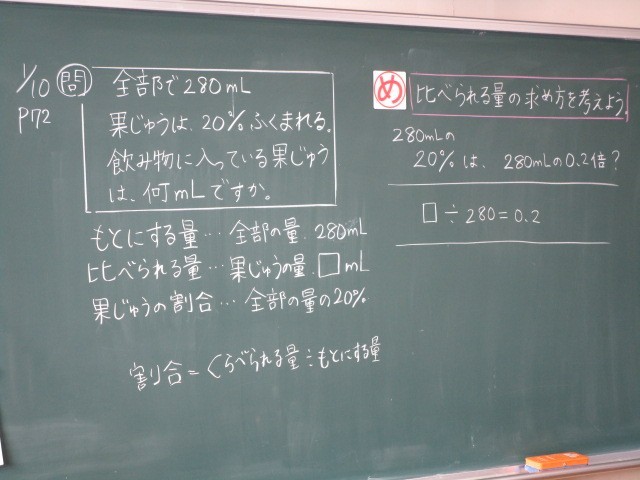 1/10
P72
問
全部で280mL
果じゅうは、20%ふくまれる。
飲み物に入っている果じゅう
は、何mLですか。
もとにする量…全部の量.280mL
比べられる量…果じゅうの量.□mL
果じゅうの割合…全部の量の20%
割合=くらべられる量÷もとにする量
め
比べられる量の求め方を考えよう。
280mLの
20%は、280mLの0.2倍?
□÷280=0.2